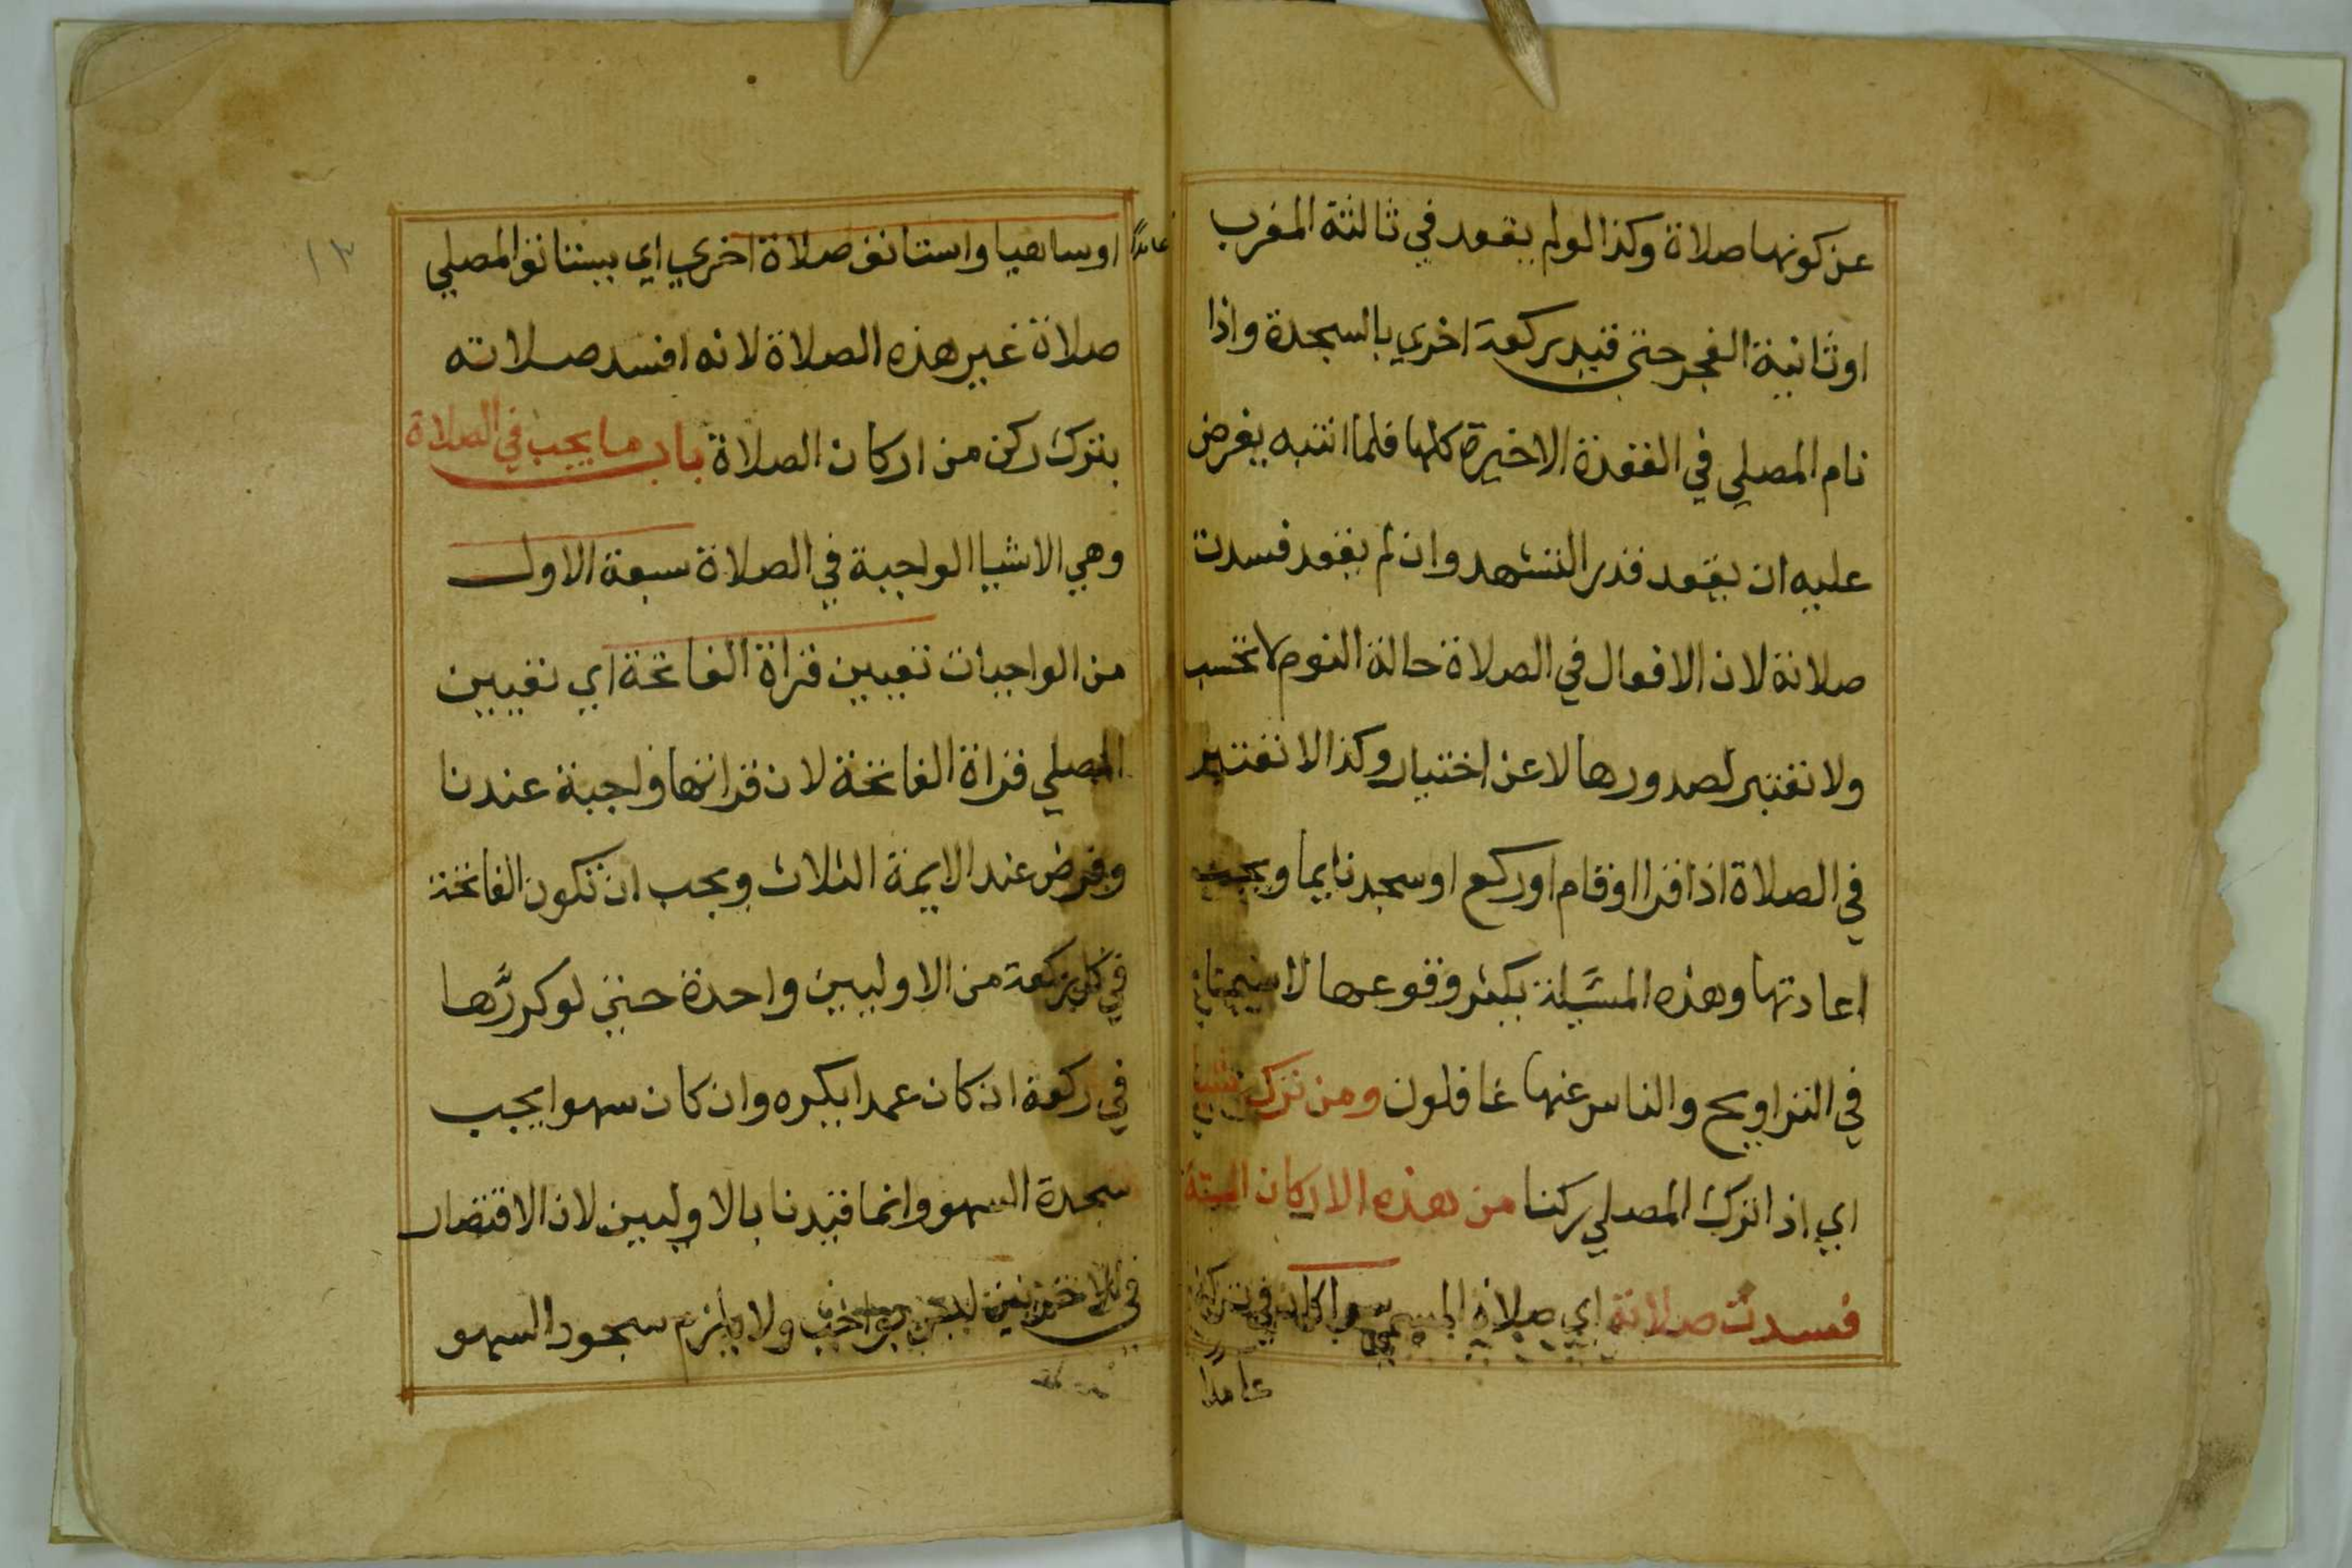 عن كونها صلاة وكذا لو لم يقعد في ثالثة المغرب
او ثانية الفجر حتى قيد ركعة اخري بالسجدة واذا
نام المصلي في القعدة الاخيرة كلها فلما انتبه يفرض
عليه ان يقعد قدر التشهد وان لم يقعد فسدت
صلاته لان الافعال في الصلاة حالة النوم لا تحتسب
ولا تعتبر لصدورها لا عن اختيار وكذا لا تعتبر
في الصلاة اذا قرا او قام او ركع او سجد نايما ويجب
اعادتها وهذه المسئلة يكثر وقوعها لا سيما
في التراويح والناس عنها غافلون ومن ترك شيا
اي اذا ترك المصلي ركنا من هذه الاركان الستة
فسدت صلاته اي صلاة سوا كان في تركه
عامدا
عامدا
او ساهيا واستانف صلاة اخري اي يستانف المصلي
صلاة غير هذه الصلاة لانه افسد صلاته
بترك ركن من اركان الصلاة باب ما يجب في الصلاة
وهي الاشيا الواجبة في الصلاة سبعة الاول
من الواجبات تعيين قراة الفاتحة اي تعيين
المصلي قراة الفاتحة لان قراتها واجبة عندنا
وفرض عند الايمة الثلاث ويجب ان تكون الفاتحة
في كل ركعة من الاوليين واحدة حتى لو كررها
في ركعة ان كان عمدا يكره وان كان سهوا يجب
سجدة السهو وانما قيدنا بالاوليين لان الاقتصار
في الاخريين ليس بواجب ولا يلزم سجود السهو
١٣